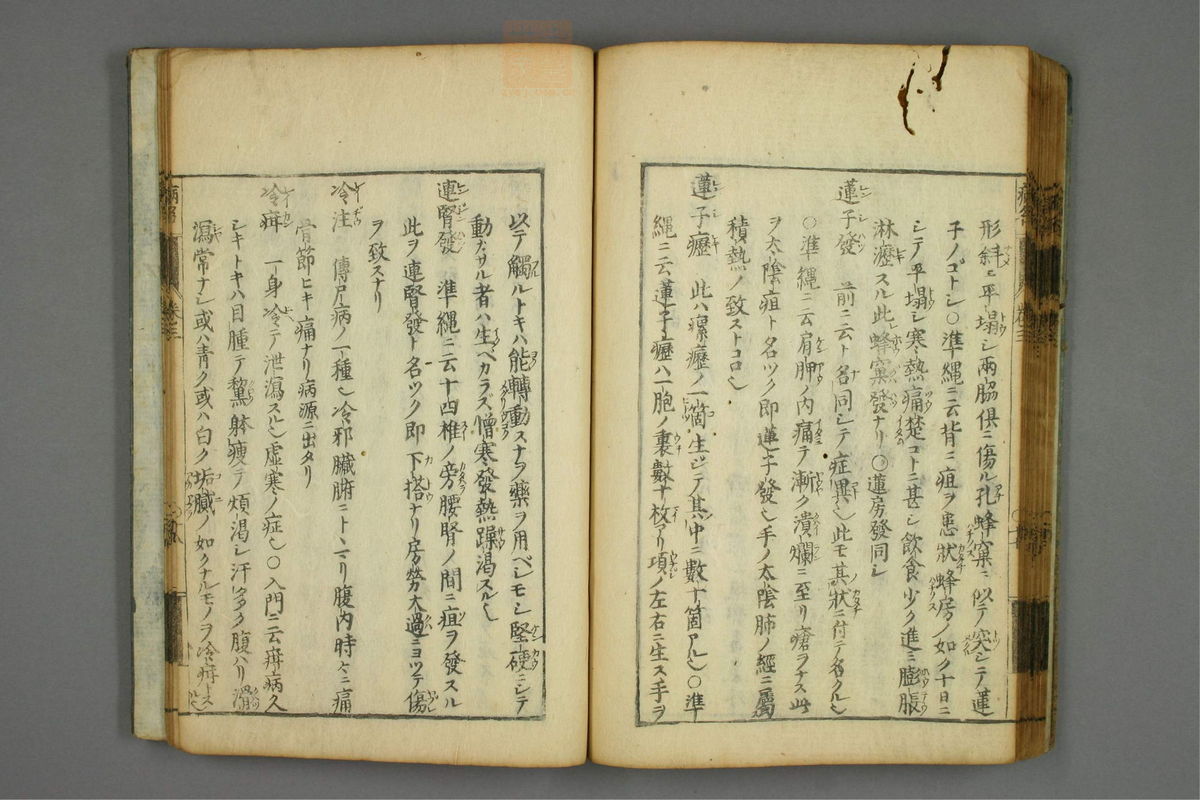 形斜ニ平塌シ兩脇倶ニ傷ル孔蜂窠ニ似テ突シテ蓮
子ノゴトシ〇準繩ニ云背ニ疽ヲ患狀蜂房ノ如ク十日ニ
シテ平塌シ寒熱痛楚コトニ甚シ飲食少ク進ミ膨脹
淋瀝スル此蜂窠發ナリ〇蓮房發同シ
蓮子發 前ニ云ト名同シテ症異ヒ此モ其狀ニ付テ名クルヒ
〇準繩ニ云肩胛ノ内痛テ漸ク潰爛ニ至リ瘡ヲナス此
ヲ太陰疽ト名ツク即蓮子發ヒ手ノ太陰肺ノ經ニ屬
積熱ノ致ストコロヒ
蓮子癧 此ハ瘰癧ノ一箇生ジテ其中ニ數十箇アルヒ〇準
縄ニ云蓮子癧ハ一胞ノ裏數十枚アリ項ノ左右ニ生ス手ヲ
以テ觸ルトキハ能轉動スナヲ藥ヲ用ベシモシ堅硬ニシテ
動カサル者ハ生ベカラズ憎寒發熱躁渇スルヒ
連腎發 準縄ニ云十四椎ノ旁腰腎ノ間ニ疽ヲ發スル
此ヲ連腎發ト名ツク即下搭ナリ房勞大過ニヨツテ傷
ヲ致スナリ
冷注 傳尸病ノ一種ヒ冷邪臟腑ニトヾマリ腹内時々ニ痛
骨節ヒキ痛ナリ病源ニ出タリ
冷疳 一身冷テ泄瀉スルヒ虛寒ノ症ヒ〇入門ニ云疳病久
シキトキハ目腫テ黧躰瘦テ煩渇シ汗多ク腹ハリ溏
瀉常ナシ或ハ青ク或ハ白ク垢膩ノ如クナルモノヲ冷疳トス